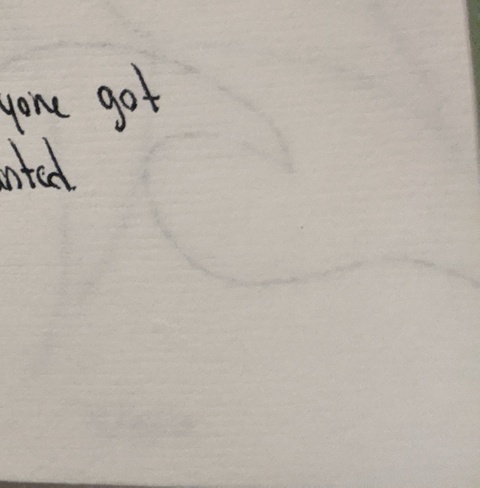 yone got
anted.